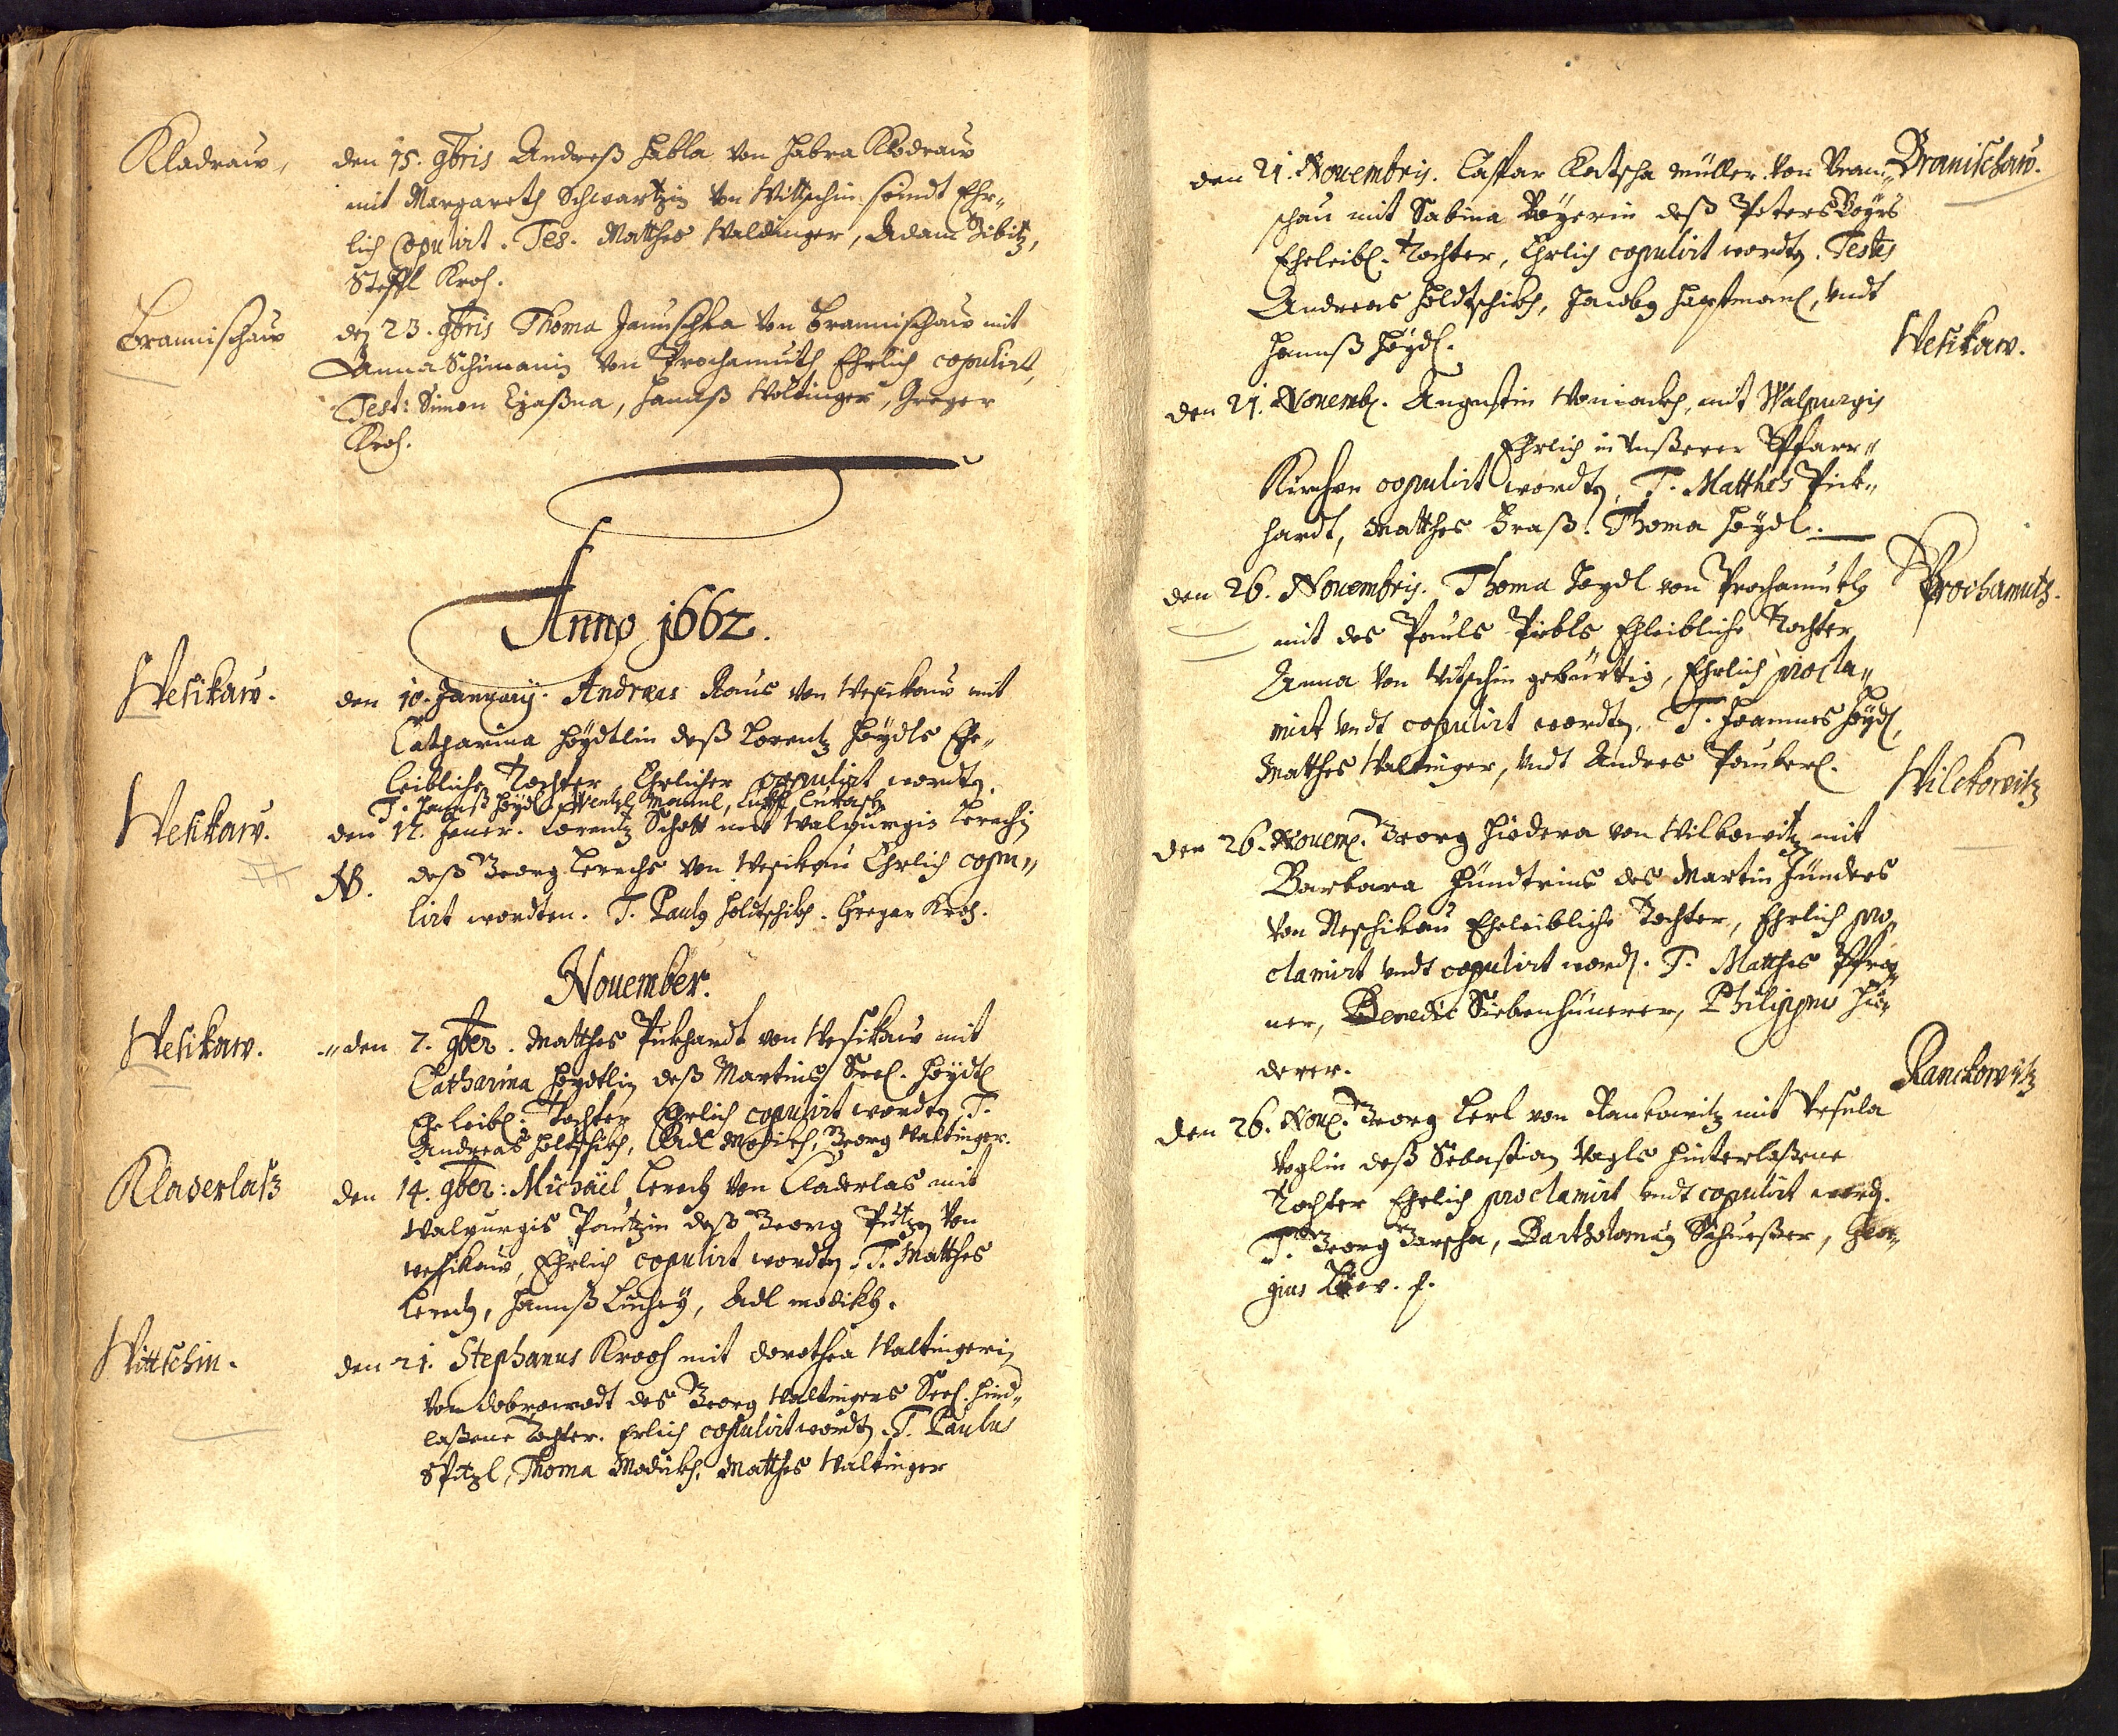 Kladraw,
den 15. 9bris Andreß Habla von Habra Klodraw
mit Margareth Schwartzin von Wittschin seindt Ehr„
lich Copulirt. Tes. Matthes Waldinger, Adam Zibitz,
Steffl Kroh.
Brannischaw
den 23. 9bris Thoma Januschka von Brannischaw mit
Anna Schimanin von Prochamuth Ehrlich copulirt,
Test: Simon, Hannß Woltinger, Greger
Kroh.
Anno 1662.
Wesikaw.
den 10. January. Andreas Raus von Wesikaw mit
Catharina Höydtlin deß Lorentz Höydls Ehe„
leibliche Tochter, Ehrlicher copulirt wordten.
T. Hannß Höydl, Wentzl Manul,
Wesikaw.
den 12. Jener. Lorentz Schott mit Walpurgis Lerchin
NB. deß Georg Lerchs von Wesikau Ehrlich copu„
lirt wordten. T. Pauly Holdtschikh. Gregar Kroh.
November.
Wesikaw.
den 7. 9ber. Matthes Pickhardt von Wesikaw mit
Catharina Höydtlin deß Martins Seel. Höydtl
Eheleibl. Tochter Ehrlich copulirt wordten T.
Andreas Holtschikh, Adl Modikh, Georg Waltinger.
Kladerlasz
den 14. 9ber: Michäel Lerch von Claderlas mit
Walpurgis Pautzin deß Georg von
Wesikaw, Ehrlich copulirt wordten, T. Matthes
Lerch, Hannß, Adl modikh.
Wittschin.
den 21. Stephanus Krooh mit Dorothea Waltingerin
von Dobrawodt des Georg Waltingers Seel. hind„
laßene Tochter. Erlich copulirt wordten T. Paulus
Spitzl, Thoma Modickh, Matthes Waltinger
den 21. Nouembris. Caspar Kotscha müller von Brani„ Branischaw.
schau mit Sabina Böyerin deß Peters Böyrs
Eheleibl. Tochter, Ehrlich copulirt wordten. Testes
Andreas Holdtschikh, Jacoby Hartmanl, vndt
Hannß Höydl.
Wesikaw.
den 21. Nouemb. Augustin Woniackh, mit Walpurgis
Ehrlich in vnßerer Pfarr„
Kirchen copulirt wordten, T. Matthes Pick„
hardt, Matthes Graß. Thoma Höydl.
den 26. Nouembris. Thoma Hoydl von Prochamuth Prochamutz.
mit des Pauls Piebls Ehleibliche Tochter
Anna von Witschin gebürttig, Ehrlich procla„
mirt vndt copulirt wordten, T. Joannes Höydl,
Matthes Waltinger, vndt Andres Paukerl.
Wilckowitz
den 26. Nouem. Georg Hiedera von Wilkowitz mit
Barbara Zündtrins des Martin Zünders
von Neschikau Eheleibliche Tochter, Ehrlich pro„
clamirt vndt copulirt word. T. Matthes Pfreg„
ner, Benedic Siebenhünerer, Philippus Hü„
derer.
Ranckowitz
den 26. Nou. Georg Lerl von Rankowitz mit Vrsula
Voglin deß Sebastian Vogls hinterlaßene
Tochter Ehrlich proclamirt vndt copulirt word.
T. Georg Barscha, Bartholomäy Schusßer, Geor„
gius